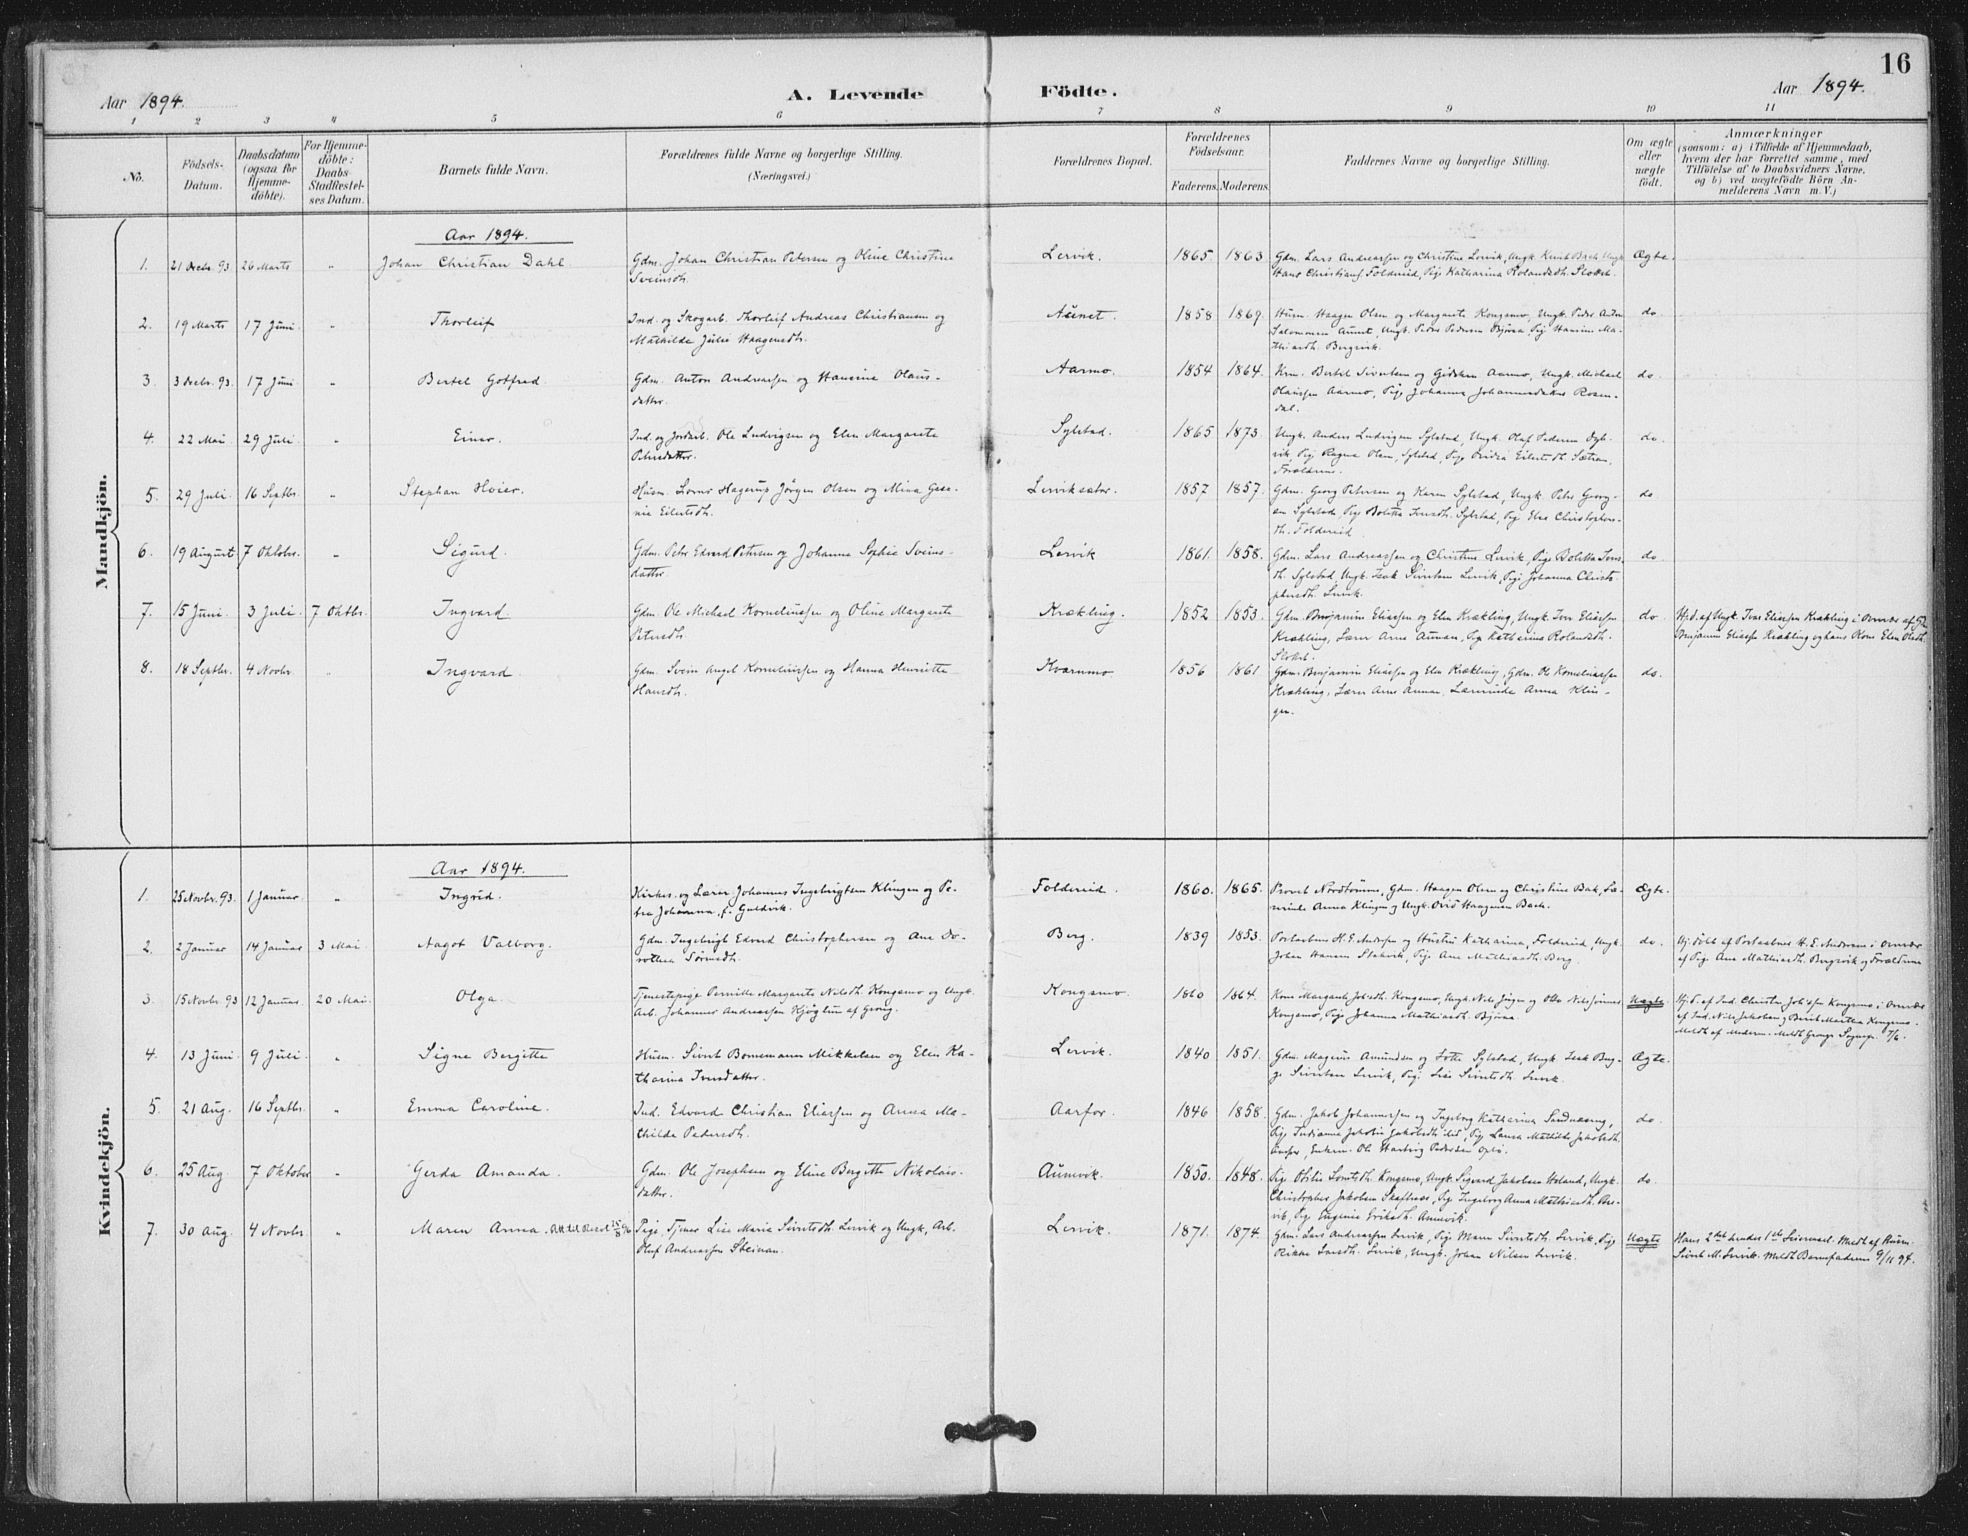 16
Aar 1894.
A. Levende Födte.
Aar 1894.
1 2 3 4 5 6 7 8 9 10 11
No.
Födsels-
Datum.
Daabsdatum
(ogsaa for
Hjemme-
döbte).
For Hjemme-
döbte:
Daabs-
Stadfæstel-
ses Datum.
Barnets fulde Navn.
Forældrenes fulde Navne og borgerlige Stilling.
(Næringsvei.)
Forældrenes Bopæl.
Forældrenes
Födselsaar.
Faderens. Moderens.
Faddernes Navne og borgerlige Stilling.
Om ægte
eller
uægte
födt.
Anmærkninger
(saasom: a) i Tilfælde af Hjemmedaab,
hvem der har forrettet samme, med
Tilföielse af to Daabsvidners Navne,
og b) ved uægtefödte Börn An-
melderens Navn m. V.)
Mandkjön.
Aar 1894.
1. 21 Decbr. 93 26 Marts " Johan Christian Dahl. Gdm. Johan Christian Petersen og Oline Christine
Sveinsdtr. Lervik. 1865 1863 Gdm. Lars Andreassen og Christine Lervik, Ungk. Knut Bach, Ungk.
Hans Christians. Foldereid, Pige Katharina Rolandsdtr. Ægte.
2. 19 Marts 17 Juni " Thorleif Ind. og Skogarb. Thorleif Andreas Christiansen og
Mathilde Julie Haagensdtr. Aunet. 1858 1869. Husm. Haagen Olsen og Margarete Kongsmo, Ungk. Peder Anton
Salomonsen Aunet, Ungk. Peder Pedersen Björaa, Pige Hansine Ma-
thiasdtr. Bergsvik. do
3. 3 Decbr. 93. 17 Juni " Bertel Gotfred Gdm. Anton Andreassen og Hansine Olaus-
datter Aarmo. 1854 1864. Krm. Bertel Sivertsen og Gidsken Aarmo, Ungk. Michael
Olaussen Aarmo, Pige Johanna Johannesdatter Rosen-
dal. do
4. 22 Mai 29 Juli " Einar. Ind. og Jordarb. Ole Ludvigsen og Elen Margarete
Petersdatter. Sylstad. 1865 1873. Ungk. Anders Ludvigsen Sylstad, Ungk. Olaf Pedersen
vik, Pige Ragna Olsen, Sylstad, Pige Eilertsdtr. Sætran,
Forældrene. do.
5. 29 Juli. 16 Septbr. " Stephan Hoier. Husm. Hagerup Jörgen Olsen og Mina Gese-
nie Eilertsdtr. Lerviksæter. 1857 1857. Gdm. Georg Petersen og Karen Sylstad, Ungk. Peter Georg-
sen Sylstad, Pige Boletta Sylstad, Pige Else Christophers-
dtr. Foldereid do
6. 19 August 7 Oktober. " Sigurd. Gdm. Peter Edvard Petersen og Johanna Sophie Sveins-
datter. Lervik 1861. 1858. Gdm. Lars Andreassen og Christine Lervik, Pige Boletta
Sylstad, Ungk. Isak Sivertsen Lervik, Pige Johanna Christo-
phersdtr. Lervik. do
7. 15 Juni. 3 Juli 7 Oktbr. Ingvard Gdm. Ole Michael Korneliussen og Oline Margarete
Petersdtr. Krækling. 1852 1853. Gdm. Benjamin Eliassen og Elen Krækling, Ungk. Iver Eliassen
Krækling, Lærer Arne Aunan, Pige Katharina Rolandsdtr. do. Hjd. af Ungk. Iver Eliassen Krækling i Overvær af
Benjamin Eliassen Krækling og hans Kone Elen Olsdtr.
8. 18 Septbr. 4 Novbr. " Ingvard. Gdm. Svein Angel Korneliussen og Hanna Henriette
Hansdtr. Kvarnmo 1856 1861 Gdm. Benjamin Eliassen og Elen Krækling, Gdm. Ole Korneliussen
Krækling, Lærer Arne Aunan, Lærerinde Anna Klin-
gen. do.
Kvindekjön.
Aar 1894.
1. 25 Novbr. 93. 1 Januar " Ingrid. Kirkes. og Lærer Johannes Ingebrigtsen Klingen og Pe-
tra Johanna, f. Guldvik. Foldereid. 1860. 1865. Provst Nordtömme, Gdm. Haagen Olsen og Christine Bach, Læ-
rerinde Anna Klingen og Ungk. Haagensen Bach. Ægte.
2. 2 Januar 14 Januar 3 Mai Aagot Valborg. Gdm. Ingebrigt Edvard Christophersen og Ane Do-
rothea Sörensdtr. Berg. 1839 1853. Postaabner H. E. Andersen og Hustru Katharina, Foldereid, Ungk.
Johan Hansen Pige Ane Mathiasdtr. Berg. do. Hj. döbt af Postaabner H. E. Andersen i Overvær
af Pige Ane Mathiasdtr. Bergsvik og Forældrene
3. 15 Novbr. 93 12 Januar 20 Mai. Olga Tjenestepige Pernille Margarete Nilsdtr. Kongsmo og Ungk.
Arb. Johannes Andreassen Hjögtun af Grong. Kongsmo. 1860 1864. Kone Margarete Kongsmo, Ungk. Nils Jörgen og Ole Nilssönner
Kongsmo, Pige Johanna Mathiasdtr. Björaa. Uægte. Hj. d. af Ind. Christen Kongsmo i Overvær
af Ind. Nils Jakobsen og Berit Martha Kongsmo.
Meldt af Moderen. Meldt Grongs Sognepr. 7/6.
4. 13 Juni 9 Juli. " Signe Bergitte Husm. Sivert Bornemann Mikkelsen og Elen Ka-
tharina Iversdatter. Lervik. 1840 1851. Gdm. Magnus Amundsen og Lotte Sylstad, Ungk. Isak Byg-
ge Sivertsen Lervik, Pige Lise Sivertsdtr. Lervik. Ægte.
5. 21 Aug. 16 Septbr. " Emma Caroline. Ind. Edvard Christian Eliassen og Anna Ma-
thilde Pedersdtr. Aarfor. 1846 1858. Gdm. Jakob Johannessen og Ingeborg Katharina Sandnæseng,
Pige Indianna Jakobine Jakobsdtr. ibid, Pige Laura Mathilde Jakobsdtr.
Aarfor, Enkem. Ole Hartvig Pedersen Oplö. do
6. 25 Aug 7 Oktober " Gerda Amanda. Gdm. Ole Josephsen og Eline Bergitte Nikolais-
datter. Aunvik. 1850. 1848. Pige Kongsmo, Ungk. Sigvard Jakobsen Haland, Ungk.
Christopher Jakobsen Skaftnæs, Pige Ingeborg Anna Mathiasdtr.
vik, Pige Eugenie Eriksdtr. Aunvik. do.
7. 30 Aug. 4 Novbr. " Maren Anna. Att. til 15/8 96 Pige, Tjener Lise Marie Sivertsdtr. Lervik og Ungk. Arb.
Oluf Andreassen Steinan. Lervik. 1871. 1874. Gdm. Lars Andreassen Lervik, Pige Maren Sivertsdtr. Lervik, Pige
Rikke Larsdtr. Lervik, Ungk. Johan Nilsen Lervik. Uægte Hans 2det hendes 1ste Leiermaal. Meldt af Husm.
Sivert M. Lervik. Meldt Barnefaderen 9/11 94.